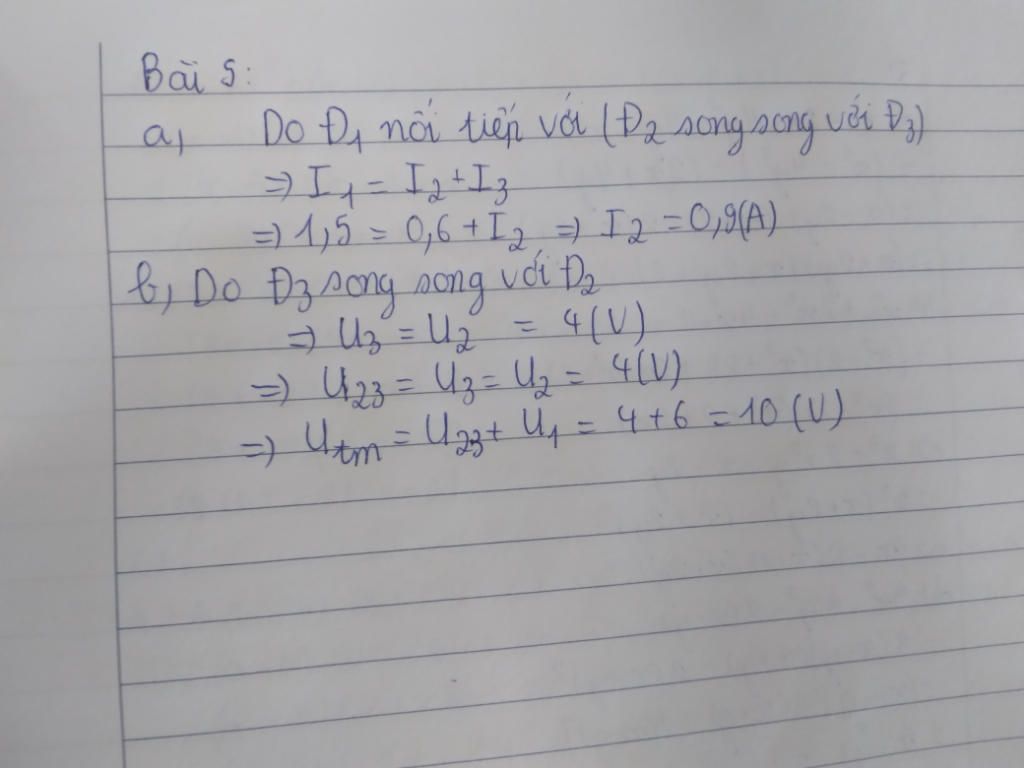 Bài 5:
a, Do Đ1 nối tiếp với (Đ2 song song với Đ3)
=> I1 = I2 + I3
=> 1,5 = 0,6 + I2 => I2 = 0,9(A)
b, Do Đ3 song song với Đ2
=> U3 = U2 = 4(V)
=> U23 = U3 = U2 = 4(V)
=> Utm = U23 + U1 = 4 + 6 = 10 (V)